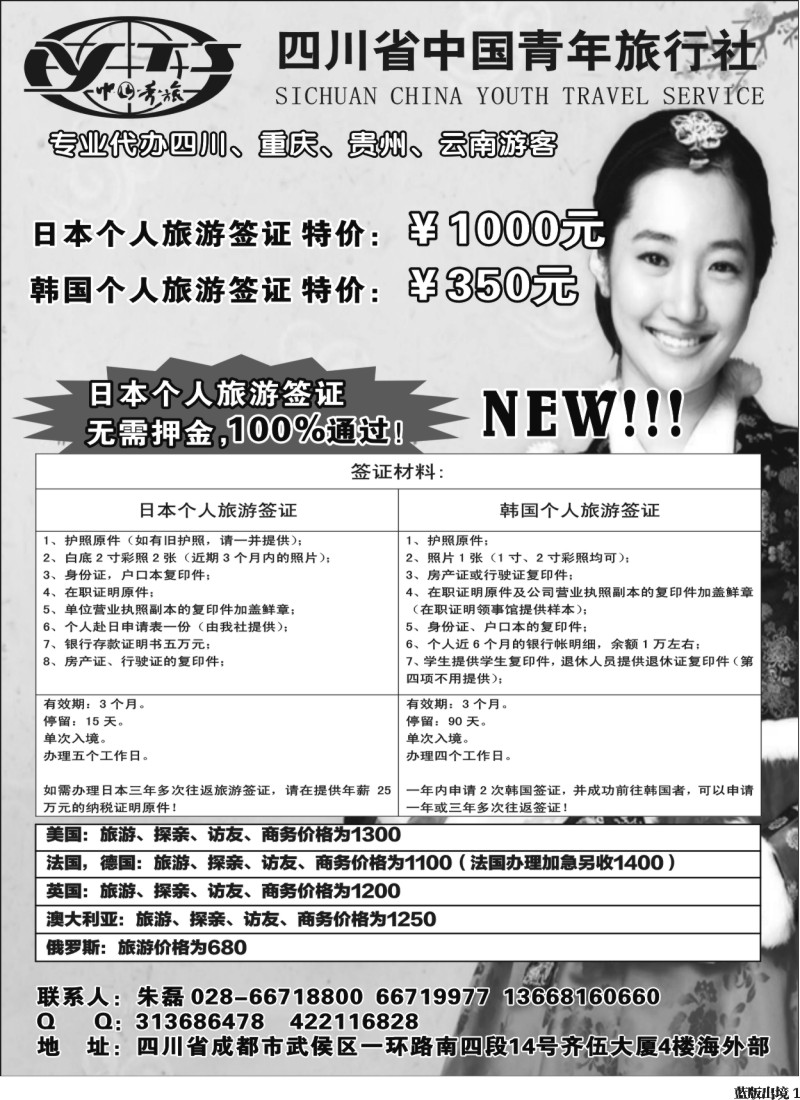 CYTS
中国青旅
四川省中国青年旅行社
SICHUAN CHINA YOUTH TRAVEL SERVICE
专业代办四川、重庆、贵州、云南游客
日本个人旅游签证 特价：￥1000元
韩国个人旅游签证 特价：￥350元
日本个人旅游签证
无需押金,100%通过!
NEW!!!
签证材料:
日本个人旅游签证
1、护照原件（如有旧护照，请一并提供）；
2、白底2寸彩照2张（近期3个月内的照片）；
3、身份证，户口本复印件；
4、在职证明原件；
5、单位营业执照副本的复印件加盖鲜章；
6、个人赴日申请表一份（由我社提供）；
7、银行存款证明书五万元；
8、房产证、行驶证的复印件；
有效期：3个月。
停留：15天。
单次入境。
办理五个工作日。
如需办理日本三年多次往返旅游签证，请在提供年薪 25
万元的纳税证明原件！
韩国个人旅游签证
1、护照原件；
2、照片1张（1寸、2寸彩照均可）；
3、房产证或行驶证复印件；
4、在职证明原件及公司营业执照副本的复印件加盖鲜章
（在职证明领事馆提供样本）；
5、身份证、户口本的复印件；
6、个人近6个月的银行帐明细，余额1万左右；
7、学生提供学生复印件，退休人员提供退休证复印件（第
四项不用提供）；
有效期：3个月。
停留：90天。
单次入境。
办理四个工作日。
一年内申请2次韩国签证，并成功前往韩国者，可以申请
一年或三年多次往返签证！
美国：旅游、探亲、访友、商务价格为1300
法国，德国：旅游、探亲、访友、商务价格为1100（法国办理加急另收1400）
英国：旅游、探亲、访友、商务价格为1200
澳大利亚：旅游、探亲、访友、商务价格为1250
俄罗斯：旅游价格为680
联系人：朱磊 028-66718800 66719977 13668160660
Q Q：313686478 422116828
地 址：四川省成都市武侯区一环路南四段14号齐伍大厦4楼海外部
蓝版出境 1